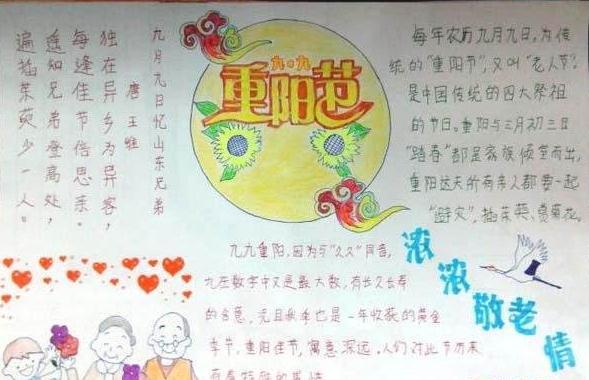 九月九日忆山东兄弟
唐 王维
独在异乡为异客，
每逢佳节倍思亲。
遥知兄弟登高处，
遍插茱萸少一人。
九·九
重阳节
每年农历九月九日，为传
统的“重阳节”，又叫“老人节”。
是中国传统的四大祭祖
的节日。重阳与三月初三日
“踏春”都是家族倾室而出，
重阳这天所有亲人都要一起
“避灾”，插茱萸、赏菊花。
九九重阳，因为与“久久”同音，
九在数字中又是最大数，有长久长寿
的含意，况且秋季也是一年收获的黄金
季节，重阳佳节，寓意深远，人们对此节历来
有着特殊的感情
浓浓敬老情